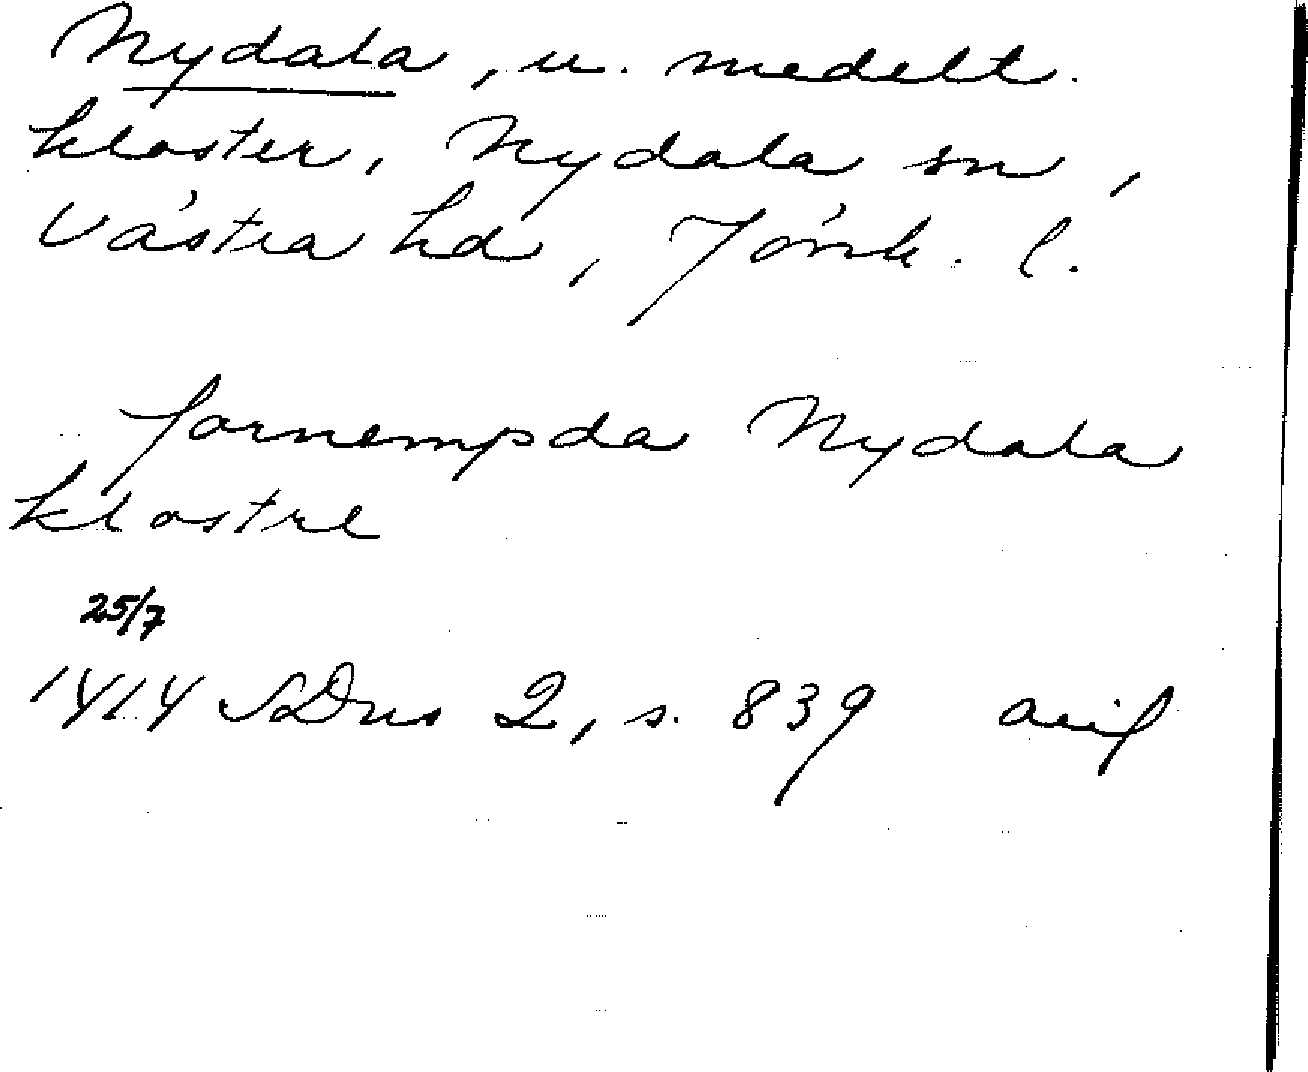 Nydala, u. medelt.
kloster, Nydala sn,
Västra hd, Jönk. l.
fornempda Nydala
klostre
25/7
1414 SDns 2, s. 839